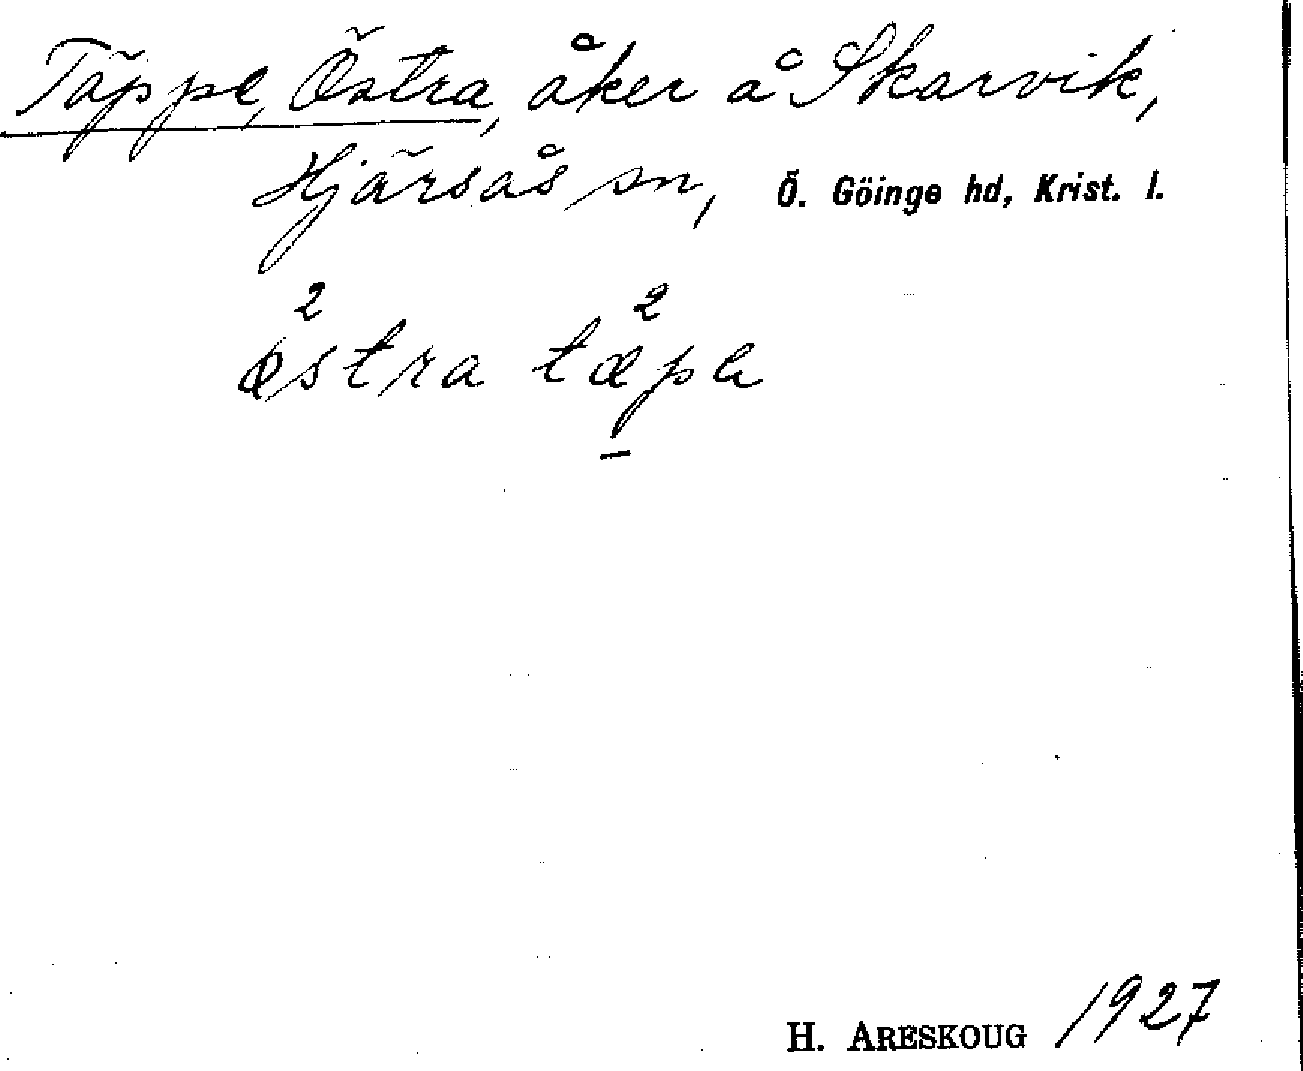 Täppe, Östra, åker å Skarvik,
Hjärsås sn, Ö. Göinge hd, Krist. l.
østra tæpa
H. ARESKOUG 1927